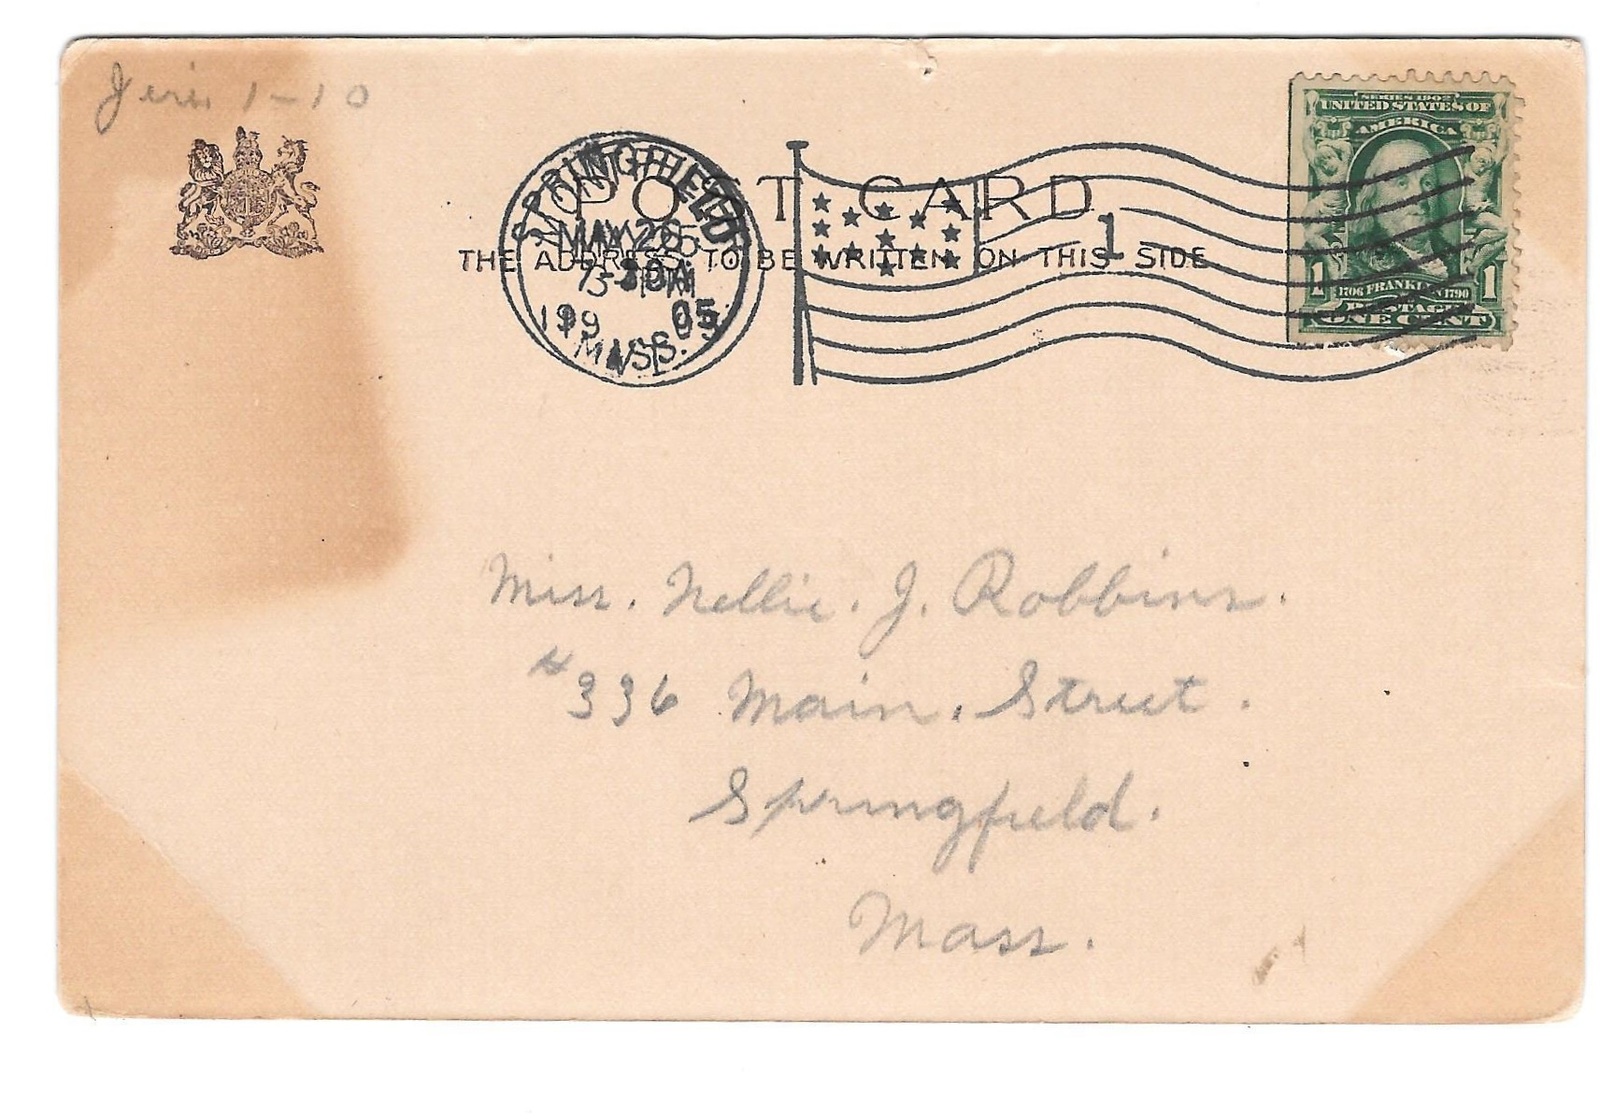 1-10
POST CARD
THE ADDRESS TO BE WRITTEN ON THIS SIDE
SPRINGFIELD
MAY 26
1905
MASS.
1
SERIES 1902
UNITED STATES OF
AMERICA
1 1706 FRANKLIN 1790 1
POSTAGE
ONE CENT
Miss. Nellie. J. Robbins.
#336 Main. Street.
Springfield.
Mass.